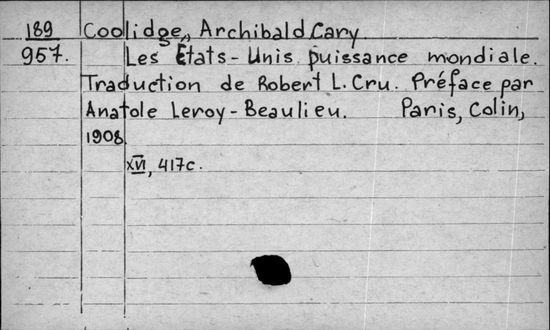 189 Coolidge, Archibald Cary
957. Les États-Unis puissance mondiale.
Traduction de Robert L. Cru. Préface par
Anatole Leroy-Beaulieu. Paris, Colin,
1908.
XVI, 417c.